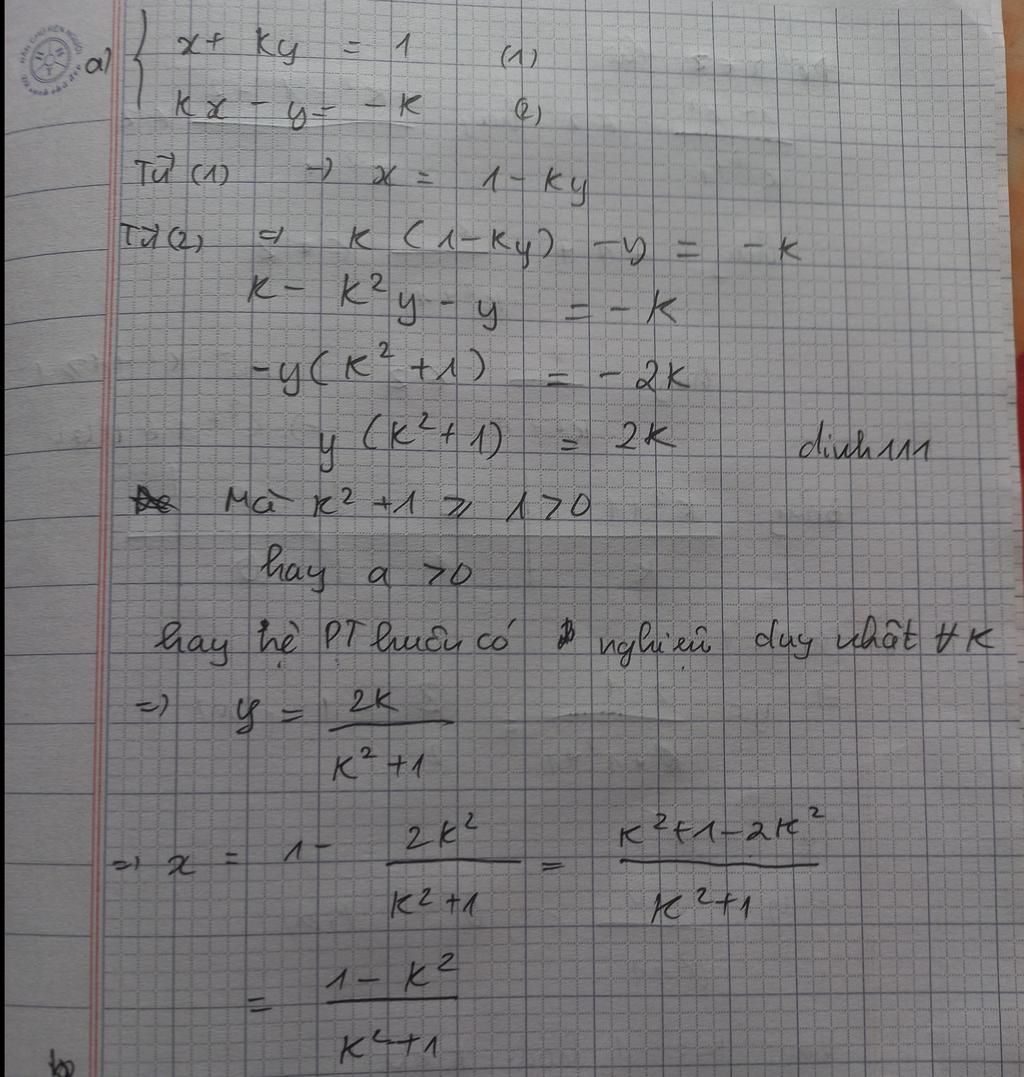 a) { x + ky = 1 (1)
kx - y = -k (2)
Từ (1) → x = 1 - ky
Từ (2) ⇒ k (1-ky) - y = -k
k - k²y - y = -k
-y(k² + 1) = -2k
y (k² + 1) = 2k
dinh111
Mà k² + 1 ≥ 1 > 0
hay a > 0
hay hệ PT luôn có nghiệm duy nhất ∀ k
⇒ y = 2k / (k² + 1)
⇒ x = 1 - 2k² / (k² + 1) = (k² + 1 - 2k²) / (k² + 1)
= (1 - k²) / (k² + 1)